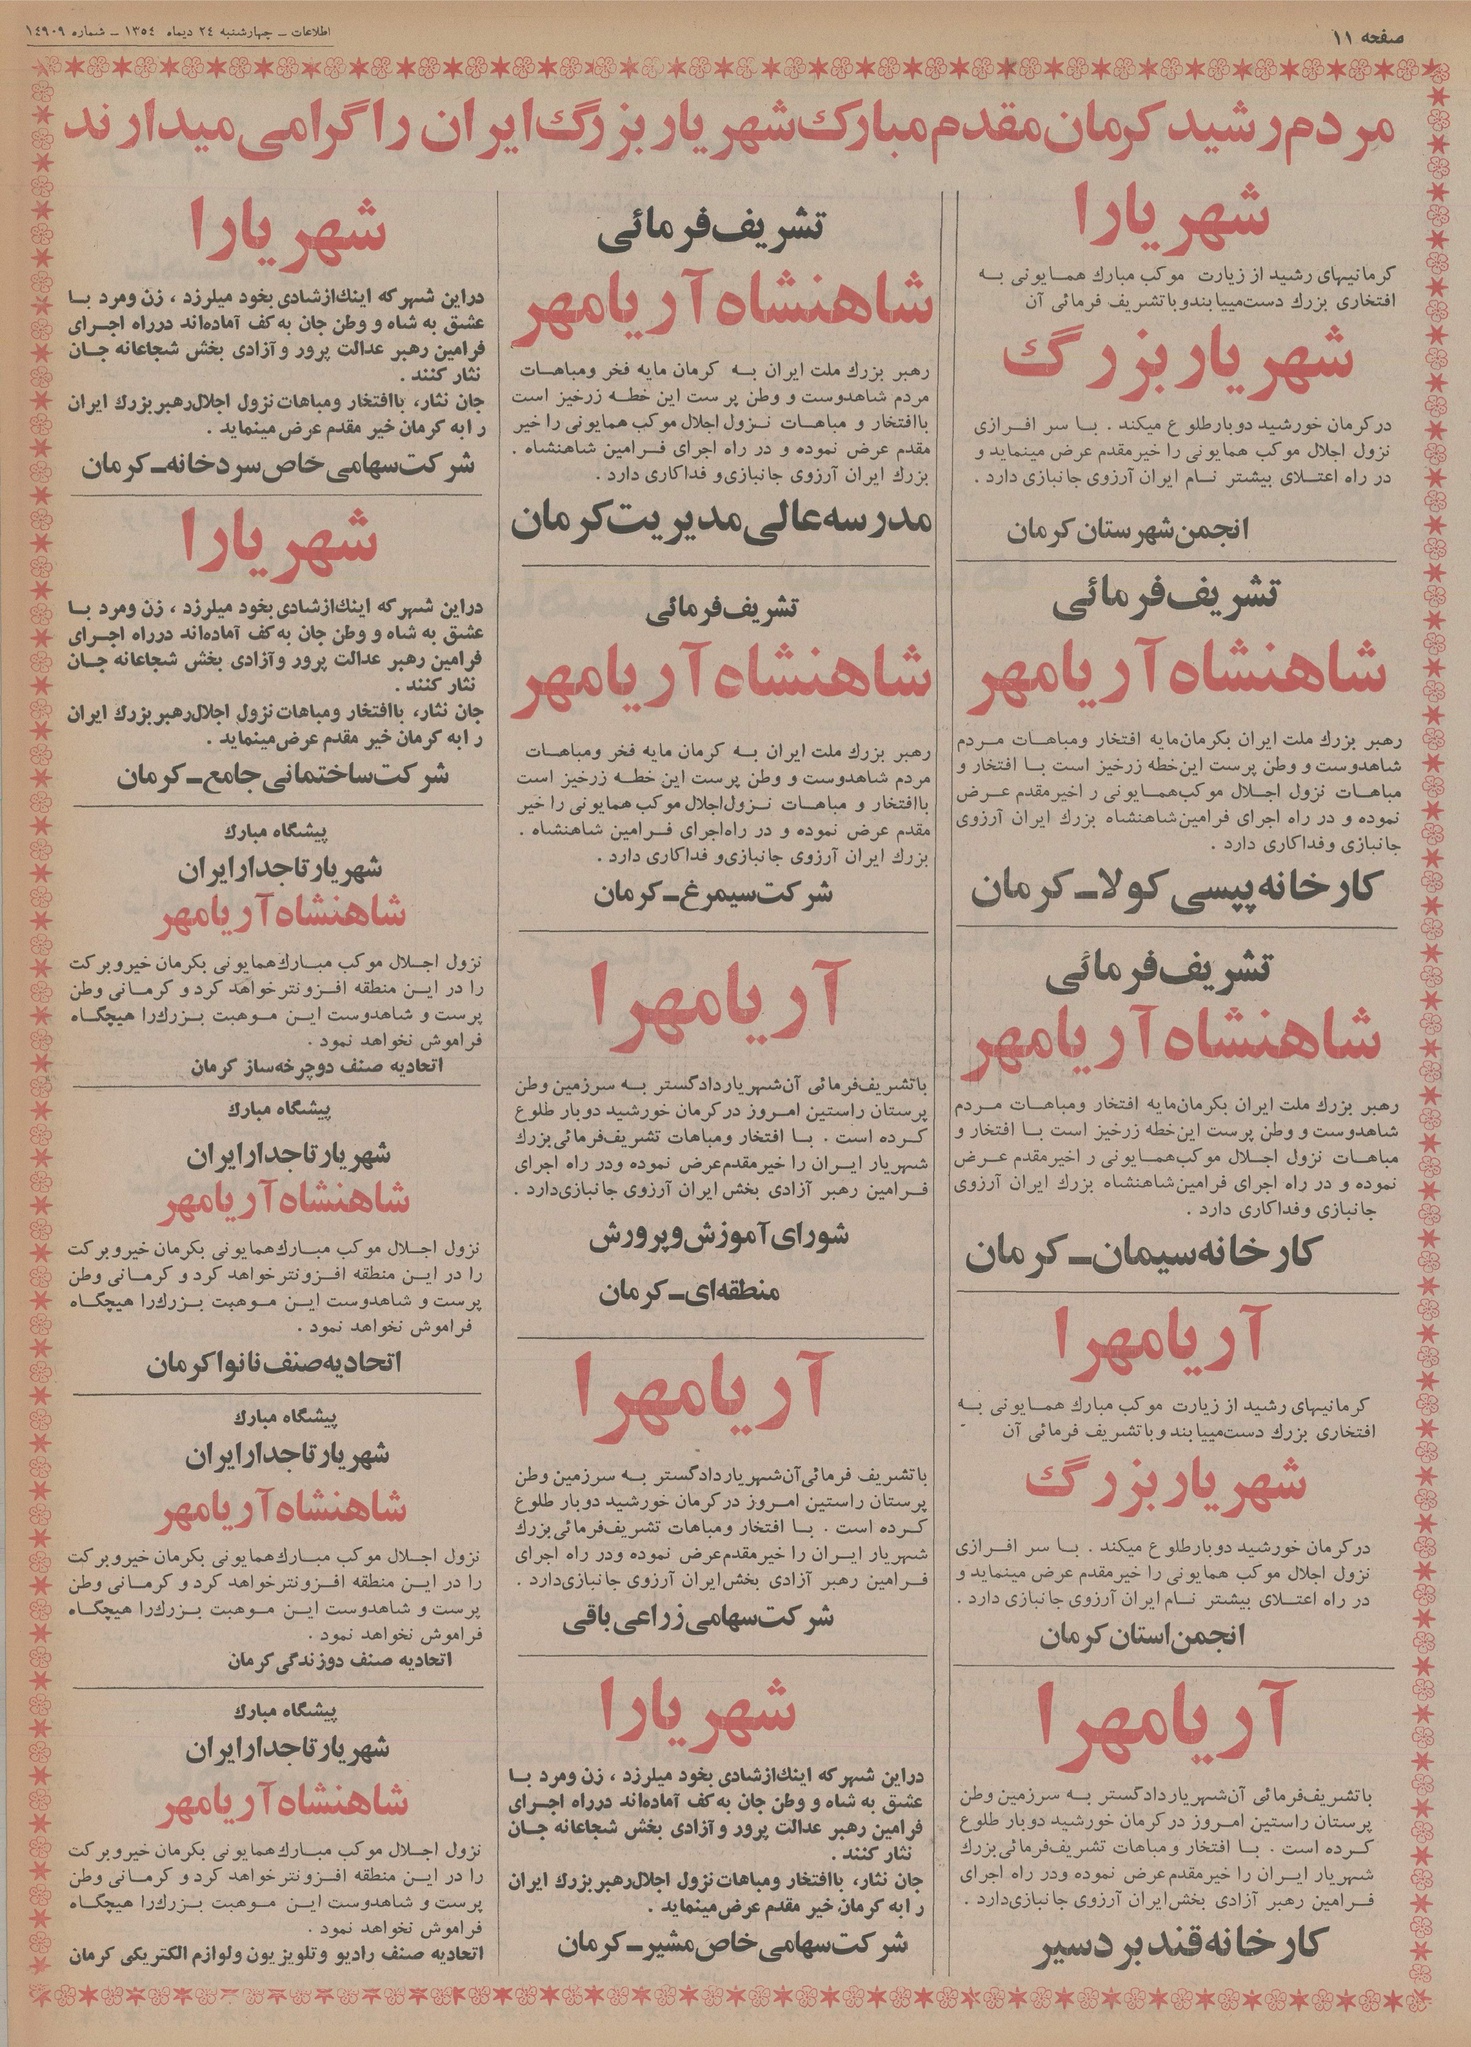 صفحه ۱۱
اطلاعات ـ چهارشنبه ۲٤ دیماه ۱۳٥٤ ـ شماره ۱٤۹۰۹
مردم رشید کرمان مقدم مبارک شهریار بزرگ ایران را گرامی میدارند
شهریارا
کرمانیهای رشید از زیارت موکب مبارک همایونی به
افتخاری بزرگ دست مییابند و با تشریف فرمائی آن
شهریار بزرگ
در کرمان خورشید دوبار طلوع میکند . با سر افرازی
نزول اجلال موکب همایونی را خیر مقدم عرض مینماید و
در راه اعتلای بیشتر نام ایران آرزوی جانبازی دارد .
انجمن شهرستان کرمان
تشریف فرمائی
شاهنشاه آریامهر
رهبر بزرگ ملت ایران بکرمان مایه افتخار و مباهات مردم
شاهدوست و وطن پرست این خطه زرخیز است با افتخار و
مباهات نزول اجلال موکب همایونی را خیر مقدم عرض
نموده و در راه اجرای فرامین شاهنشاه بزرگ ایران آرزوی
جانبازی و فداکاری دارد .
کارخانه پپسی کولا ـ کرمان
تشریف فرمائی
شاهنشاه آریامهر
رهبر بزرگ ملت ایران بکرمان مایه افتخار و مباهات مردم
شاهدوست و وطن پرست این خطه زرخیز است با افتخار و
مباهات نزول اجلال موکب همایونی را خیر مقدم عرض
نموده و در راه اجرای فرامین شاهنشاه بزرگ ایران آرزوی
جانبازی و فداکاری دارد .
کارخانه سیمان ـ کرمان
آریامهرا
کرمانیهای رشید از زیارت موکب مبارک همایونی به
افتخاری بزرگ دست مییابند و با تشریف فرمائی آن
شهریار بزرگ
در کرمان خورشید دوبار طلوع میکند . با سر افرازی
نزول اجلال موکب همایونی را خیر مقدم عرض مینماید و
در راه اعتلای بیشتر نام ایران آرزوی جانبازی دارد .
انجمن استان کرمان
آریامهرا
با تشریف فرمائی آن شهریار دادگستر به سرزمین وطن
پرستان راستین امروز در کرمان خورشید دوبار طلوع
کرده است . با افتخار و مباهات تشریف فرمائی بزرگ
شهریار ایران را خیر مقدم عرض نموده و در راه اجرای
فرامین رهبر آزادی بخش ایران آرزوی جانبازی دارد .
کارخانه قند بردسیر
تشریف فرمائی
شاهنشاه آریامهر
رهبر بزرگ ملت ایران به کرمان مایه فخر و مباهات
مردم شاهدوست و وطن پرست این خطه زرخیز است
با افتخار و مباهات نزول اجلال موکب همایونی را خیر
مقدم عرض نموده و در راه اجرای فرامین شاهنشاه .
بزرگ ایران آرزوی جانبازی و فداکاری دارد .
مدرسه عالی مدیریت کرمان
تشریف فرمائی
شاهنشاه آریامهر
رهبر بزرگ ملت ایران به کرمان مایه فخر و مباهات
مردم شاهدوست و وطن پرست این خطه زرخیز است
با افتخار و مباهات نزول اجلال موکب همایونی را خیر
مقدم عرض نموده و در راه اجرای فرامین شاهنشاه .
بزرگ ایران آرزوی جانبازی و فداکاری دارد .
شرکت سیمرغ ـ کرمان
آریامهرا
با تشریف فرمائی آن شهریار دادگستر به سرزمین وطن
پرستان راستین امروز در کرمان خورشید دوبار طلوع
کرده است . با افتخار و مباهات تشریف فرمائی بزرگ
شهریار ایران را خیر مقدم عرض نموده و در راه اجرای
فرامین رهبر آزادی بخش ایران آرزوی جانبازی دارد .
شورای آموزش و پرورش
منطقه‌ای ـ کرمان
آریامهرا
با تشریف فرمائی آن شهریار دادگستر به سرزمین وطن
پرستان راستین امروز در کرمان خورشید دوبار طلوع
کرده است . با افتخار و مباهات تشریف فرمائی بزرگ
شهریار ایران را خیر مقدم عرض نموده و در راه اجرای
فرامین رهبر آزادی بخش ایران آرزوی جانبازی دارد .
شرکت سهامی زراعی باقی
شهریارا
در این شهر که اینک از شادی بخود میلرزد ، زن و مرد با
عشق به شاه و وطن جان به کف آماده‌اند در راه اجرای
فرامین رهبر عدالت پرور و آزادی بخش شجاعانه جان
نثار کنند .
جان نثار، با افتخار و مباهات نزول اجلال رهبر بزرگ ایران
را به کرمان خیر مقدم عرض مینماید .
شرکت سهامی خاص مشیر ـ کرمان
شهریارا
در این شهر که اینک از شادی بخود میلرزد ، زن و مرد با
عشق به شاه و وطن جان به کف آماده‌اند در راه اجرای
فرامین رهبر عدالت پرور و آزادی بخش شجاعانه جان
نثار کنند .
جان نثار، با افتخار و مباهات نزول اجلال رهبر بزرگ ایران
را به کرمان خیر مقدم عرض مینماید .
شرکت سهامی خاص سردخانه ـ کرمان
شهریارا
در این شهر که اینک از شادی بخود میلرزد ، زن و مرد با
عشق به شاه و وطن جان به کف آماده‌اند در راه اجرای
فرامین رهبر عدالت پرور و آزادی بخش شجاعانه جان
نثار کنند .
جان نثار، با افتخار و مباهات نزول اجلال رهبر بزرگ ایران
را به کرمان خیر مقدم عرض مینماید .
شرکت ساختمانی جامع ـ کرمان
پیشگاه مبارک
شهریار تاجدار ایران
شاهنشاه آریامهر
نزول اجلال موکب مبارک همایونی بکرمان خیر و برکت
را در این منطقه افزونتر خواهد کرد و کرمانی وطن
پرست و شاهدوست این موهبت بزرگ را هیچگاه
فراموش نخواهد نمود .
اتحادیه صنف دوچرخه ساز کرمان
پیشگاه مبارک
شهریار تاجدار ایران
شاهنشاه آریامهر
نزول اجلال موکب مبارک همایونی بکرمان خیر و برکت
را در این منطقه افزونتر خواهد کرد و کرمانی وطن
پرست و شاهدوست این موهبت بزرگ را هیچگاه
فراموش نخواهد نمود .
اتحادیه صنف نانوا کرمان
پیشگاه مبارک
شهریار تاجدار ایران
شاهنشاه آریامهر
نزول اجلال موکب مبارک همایونی بکرمان خیر و برکت
را در این منطقه افزونتر خواهد کرد و کرمانی وطن
پرست و شاهدوست این موهبت بزرگ را هیچگاه
فراموش نخواهد نمود .
اتحادیه صنف دوزندگی کرمان
پیشگاه مبارک
شهریار تاجدار ایران
شاهنشاه آریامهر
نزول اجلال موکب مبارک همایونی بکرمان خیر و برکت
را در این منطقه افزونتر خواهد کرد و کرمانی وطن
پرست و شاهدوست این موهبت بزرگ را هیچگاه
فراموش نخواهد نمود .
اتحادیه صنف رادیو و تلویزیون و لوازم الکتریکی کرمان